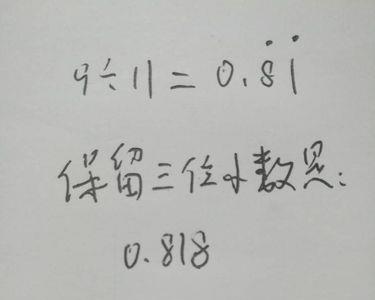 9÷11=0.8̇1̇
保留三位小数是:
0.818